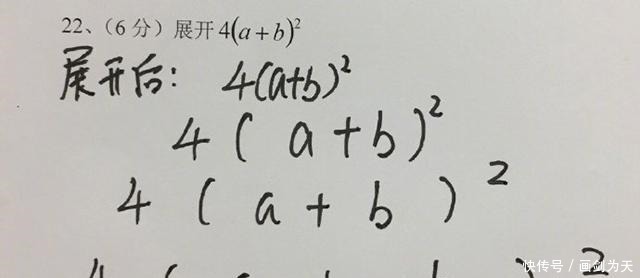 22、（6 分）展开 4(a+b)²
展开后： 4(a+b)²
4 ( a + b )²
4 ( a + b ) ²
4 ( a + b ) 2
快传号 / 画剑为天